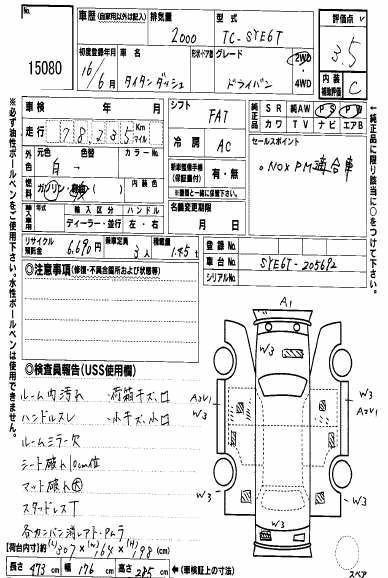 No.
15080
車歴(自家用以外は記入)
排気量
型式
2000
TC-SYE6T
評価点
3.5
内装補助評価
C
初度登録年月
車名
形状・ドア数
グレード
16/6月
タイタンダッシュ
ドライバン
2WD・4WD
車検 年 月
シフト
FAT
純正品
SR 純AW PS PW
カワ TV ナビ エアB
走行
78,235
Km
マイル
冷房
AC
セールスポイント
。NOX PM適合車
外色
元色 色替 カラーNo.
白 →
新車整備手帳(保証書付)
有・無
※書類と一緒に保管下さい。
燃料
ガソリン・軽油( )
内装色
輸入車専用
輸入区分 ハンドル
ディーラー・並行 左・右
名義変更期限
月 日
リサイクル預託金
6,690円
乗車定員
3人
積載量
1.45t
登録No.
車台No.
SYE6T-205692
シリアルNo.
◎注意事項(修復・不具合箇所および状態等)
◎検査員報告(USS使用欄)
ルーム内汚れ ・荷箱キズ、凹
ハンドルスレ ・小キズ、小凹
ルームミラー欠
シート破れ10cm位
マット破れ大
スタッドレスT
各カンバン消しアト・ムラ
【荷台内寸】約(L)307×(W)164×(H)198(cm)
長さ 473 cm 幅 176 cm 高さ 285 cm ←(車検証上の寸法)
A1
W3
W3
A3V1
W3
A2V1
W3
W3
W3
W3
スペア
※必ず油性ボールペンをご使用下さい。水性ボールペンは使用できません。
←純正品に限り該当に○をつけて下さい。